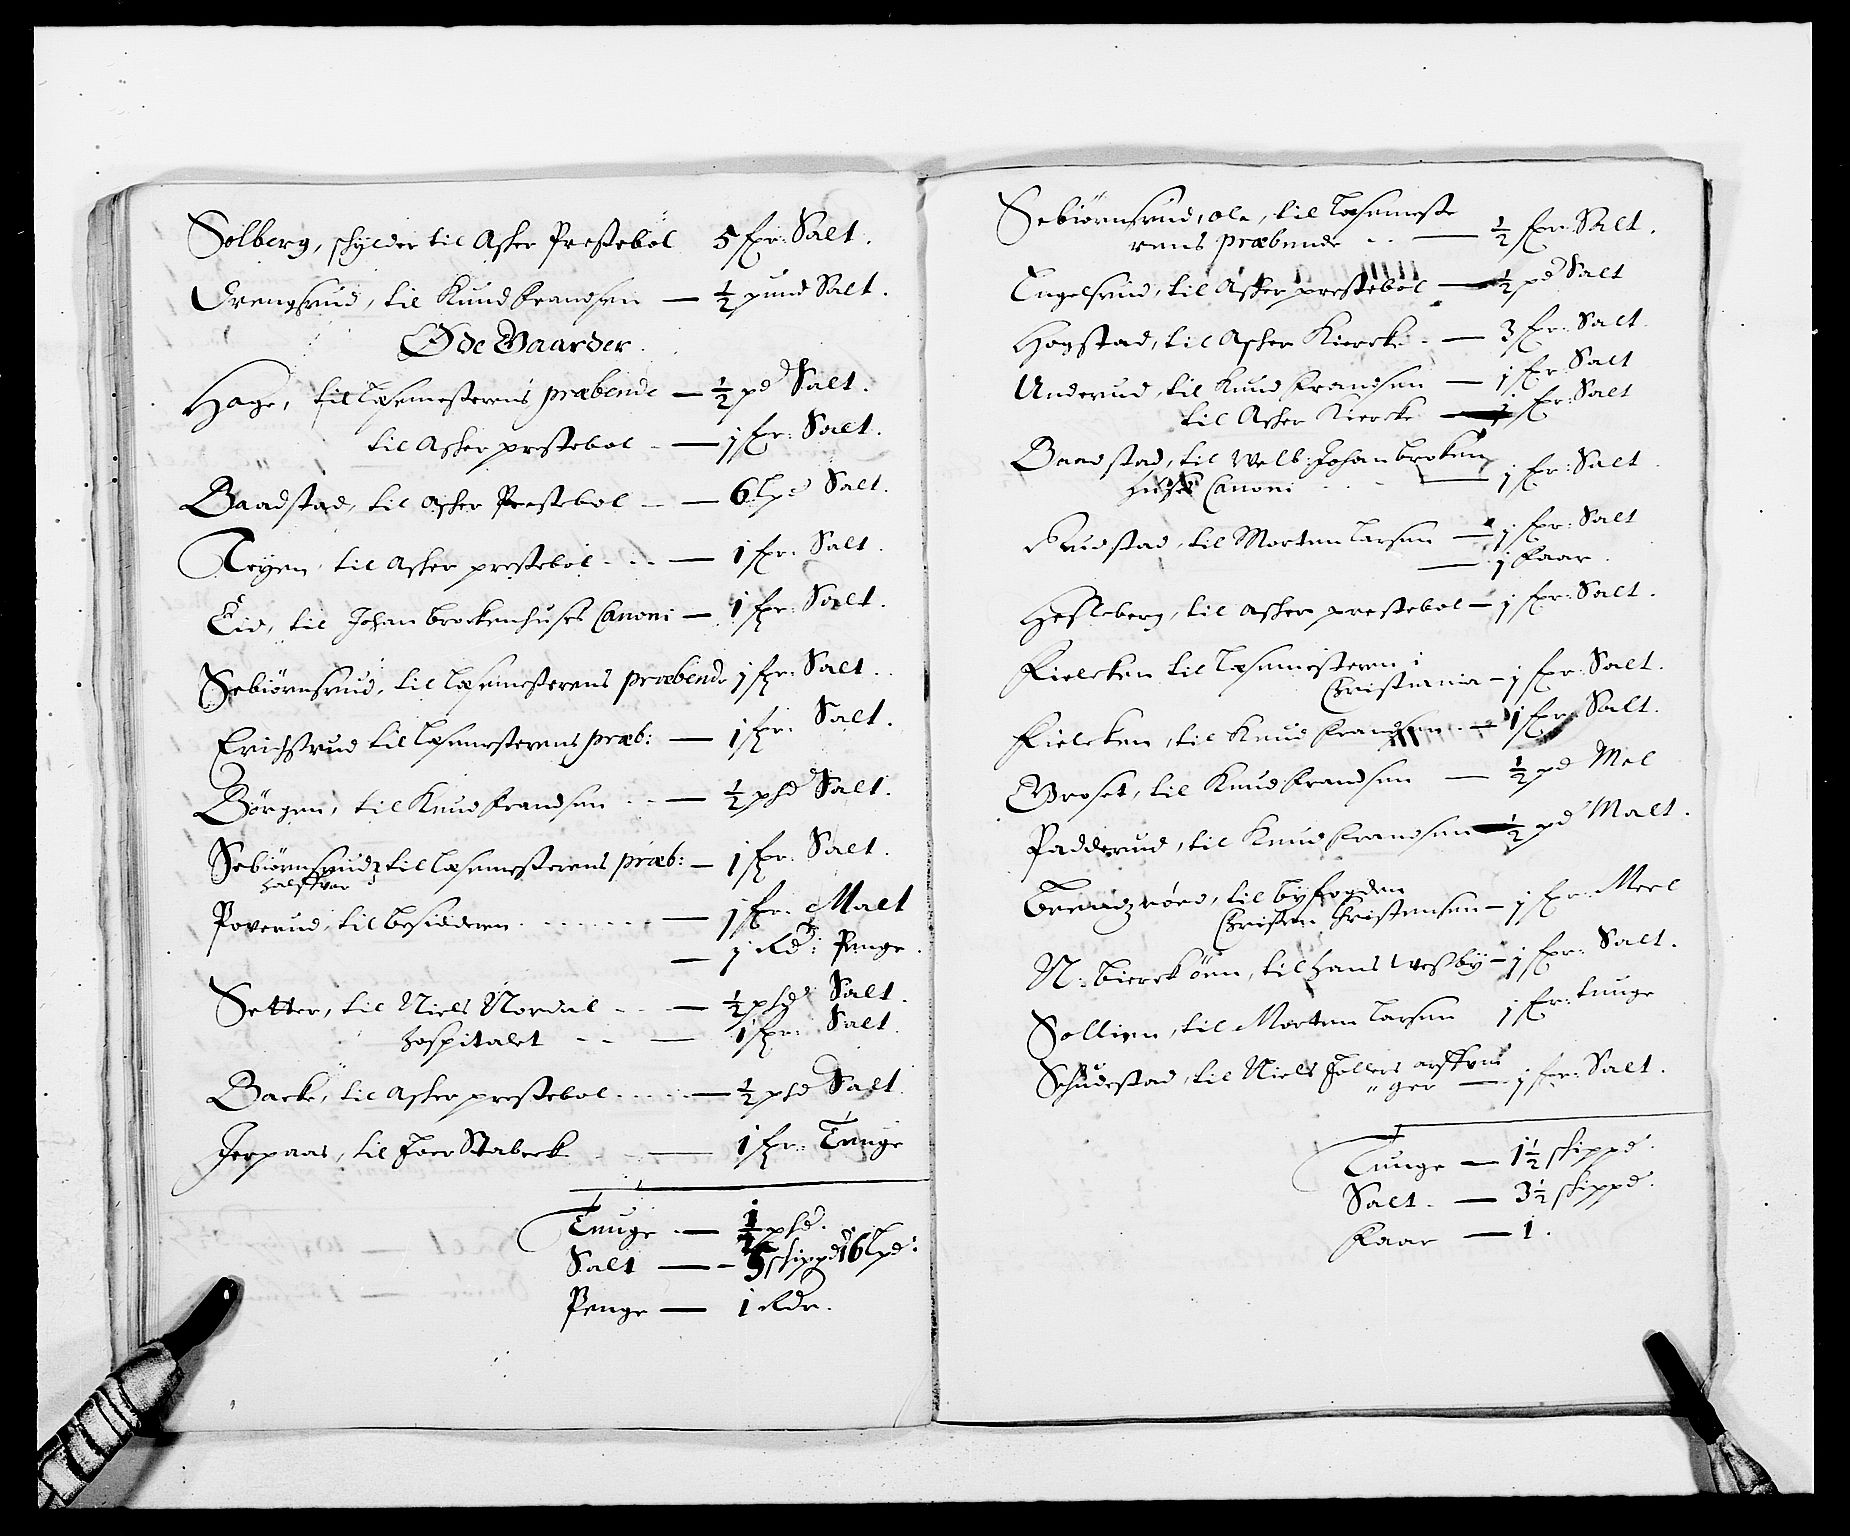 Solberg, schylder til Asker Prestebol 5 fr: Salt.
Grengsrud, til Knud Frandsen — ½ pund Salt.
Øde Gaarder.
Hage, til Læsemesterens præbende — ½ pd Salt.
til Asker prestebol — 1 fr: Salt.
Baadstad, til Asker Prestebol — 6 Lpd Salt.
til Asker prestebol — 1 fr: Salt.
Eid, til Johan Brockenhuses Canoni — 1 fr: Salt.
Sebiørnsrud, til Læsemesterens præbende 1 fr: Salt.
Erichsrud til Læsemesterens præb: — 1 fr: Salt.
Børgen, til Knud Frandsen — ½ phd Salt.
Sebiørnsrudz til Læsemesterens præb: — 1 fr: Salt.
Poverud, til besidderen — 1 fr: Malt
— 1 Rd: Penge.
Setter, til Niels Nordal — ½ phd Salt.
Hospitalet — 1 fr: Salt.
Backe, til Asker prestebol — ½ phd Salt.
Jerpaas, til Joer Stabeck — 1 fr: Tunge
Tunge — ½ phd.
Salt — 5 skippd 16 Lpd:
Penge — 1 Rdr.
Sebiørnsrud, Ole, til Læsemeste
rens præbende — ½ fr: Salt.
Engelsrud, til Asker prestebol — ½ pd Salt
Hogstad, til Asker Kiercke — 3 fr: Salt.
Underud, til Knud Frandsen — 1 fr: Salt
til Asker Kiercke — 1 fr: Salt
Baadstad, til Welb: Johan Brocken
huses Canoni — 1 fr: Salt
Gudstad, til Morten Larsen — 1 fr: Salt
— 1 Faar.
Hesleberg, til Asker prestebol — 1 fr: Salt.
Fielcken til Læsemesteren i
Christiania — 1 fr: Salt.
Fielcken, til Knud Frandsen — 1 fr: Salt.
Groset, til Knud Frandsen — ½ pd Mel
Padderud, til Knud Frandsen — ½ pd Malt.
til byfogden
Christen Christensen — 1 fr: Meel
N: Bierckøen, til Hans Wesby — 1 fr: Salt.
Sollien, til Morten Larsen 1 fr: tunge
Schudestad, til Niels Jollers arffvin
"ger — 1 fr: Salt.
Tunge — 1½ skippd.
Salt. — 3½ skippd.
Faar — 1.